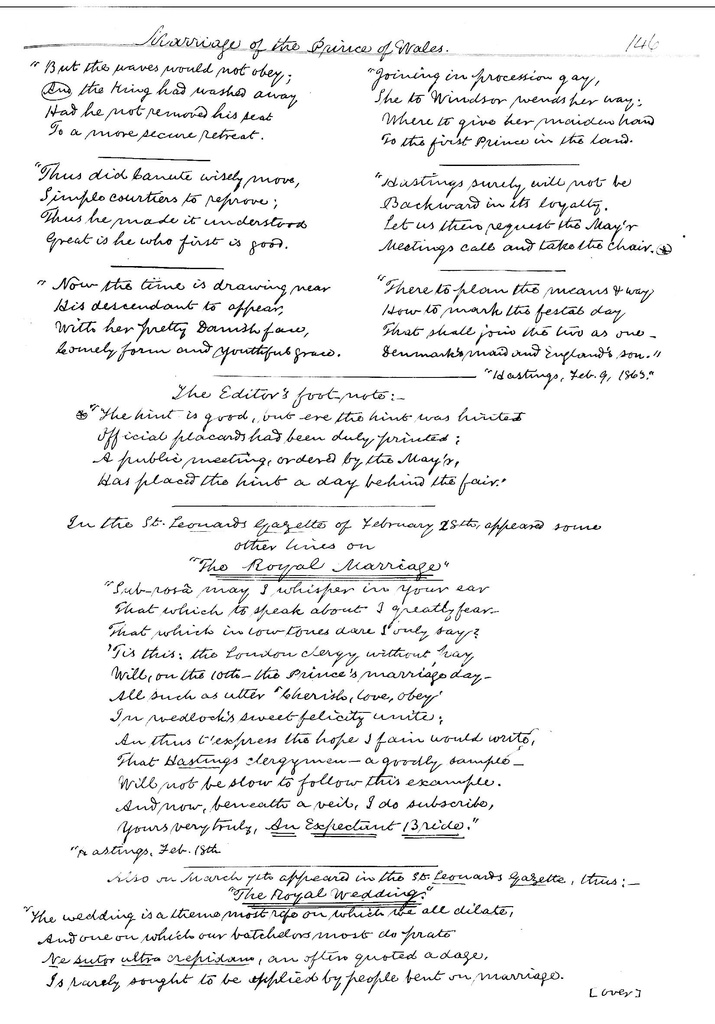 Marriage of the Prince of Wales.
146
"But the waves would not obey;
And the King had washed away
Had he not removed his seat
To a more secure retreat.
"Thus did Canute wisely move,
Simple courtiers to reprove;
Thus he made it understood
Great is he who first is good.
"Now the time is drawing near
His descendant to appear,
With her pretty Danish face,
Comely form and youthful grace.
"Joining in procession gay,
She to Windsor wends her way:
Where to give her maiden hand
To the first Prince in the land.
"Hastings surely will not be
Backward in its loyalty.
Let us then request the May'r
Meetings call and take the chair. *
"There to plan the means & way
How to mark the festal day
That shall join the two as one –
Denmark's maid and England's son."
"Hastings, Feb. 9, 1863."
The Editor's foot-note:–
* "The hint is good, but ere the hint was hinted
Official placards had been duly printed;
A public meeting, ordered by the May'r,
Has placed the hint a day behind the fair."
In the St. Leonards Gazette of February 28th, appeared some
other lines on
"The Royal Marriage"
"Sub-rosâ may I whisper in your ear
That which to speak about I greatly fear–
That which in low tones dare I only say?
'Tis this: the London clergy without pay
Will, on the 10th – the Prince's marriage day –
All such as utter 'Cherish, love, obey'
In wedlock's sweet felicity unite;
An thus t'express the hope I fain would write,
That Hastings clergymen – a goodly sample –
Will not be slow to follow this example.
And now, beneath a veil, I do subscribe,
Yours very truly, An Expectant Bride."
"Hastings, Feb. 18th
Also on March 7th appeared in the St. Leonards Gazette, thus:–
"The Royal Wedding."
"The wedding is a theme most rife on which we all dilate,
And one on which our batchelors most do prate
Ne sutor ultra crepidam, an often quoted adage,
Is rarely sought to be applied by people bent on marriage.
[over]